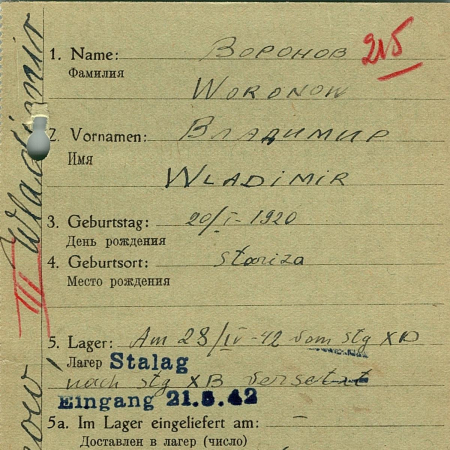 1. Name: Воронов 215
Фамилия
Woronow
2. Vornamen: Владимир
Имя
Wladimir
3. Geburtstag: 20/I-1920
День рождения
4. Geburtsort: Stariza
Место рождения
5. Lager: Am 28/IV-42 vom Stg XD
Лагерь Stalag
nach Stg XB versetzt
Eingang 21.5.42
5a. Im Lager eingeliefert am: —
Доставлен в лагерь (число)
III Wladimir